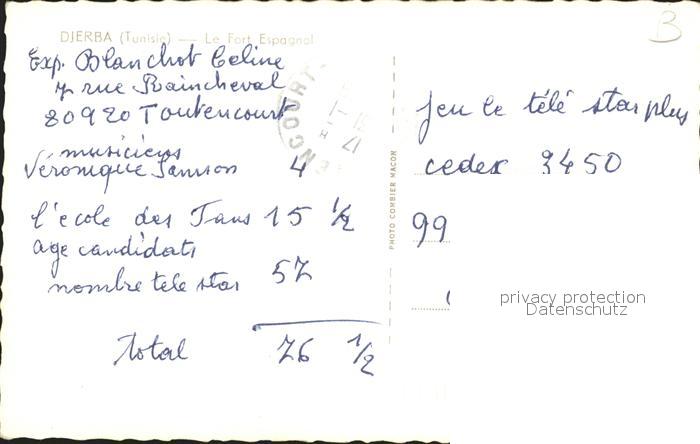 DJERBA (Tunisie) — Le Fort Espagnol
B
Exp. Blanchot Celine
7 rue Raincheval
80920 Toutencourt
musiciens
Véronique Samson 4
l'école des Fans 15 1/2
age candidats
nombre tele star 57
Total 76 1/2
PHOTO COMBIER MACON
Jeu le télé star plus
cedex 3450
99
privacy protection
Datenschutz